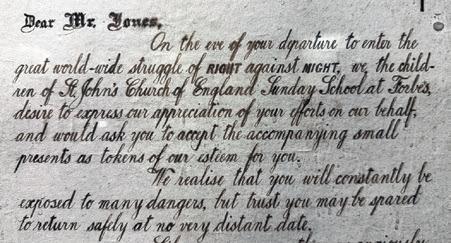 Dear Mr. Jones,
On the eve of your departure to enter the
great world-wide struggle of RIGHT against MIGHT, we, the child-
ren of St. John's Church of England Sunday School at Forbes,
desire to express our appreciation of your efforts on our behalf,
and would ask you to accept the accompanying small
presents as tokens of our esteem for you.
We realise that you will constantly be
exposed to many dangers, but trust you may be spared
to return safely at no very distant date.